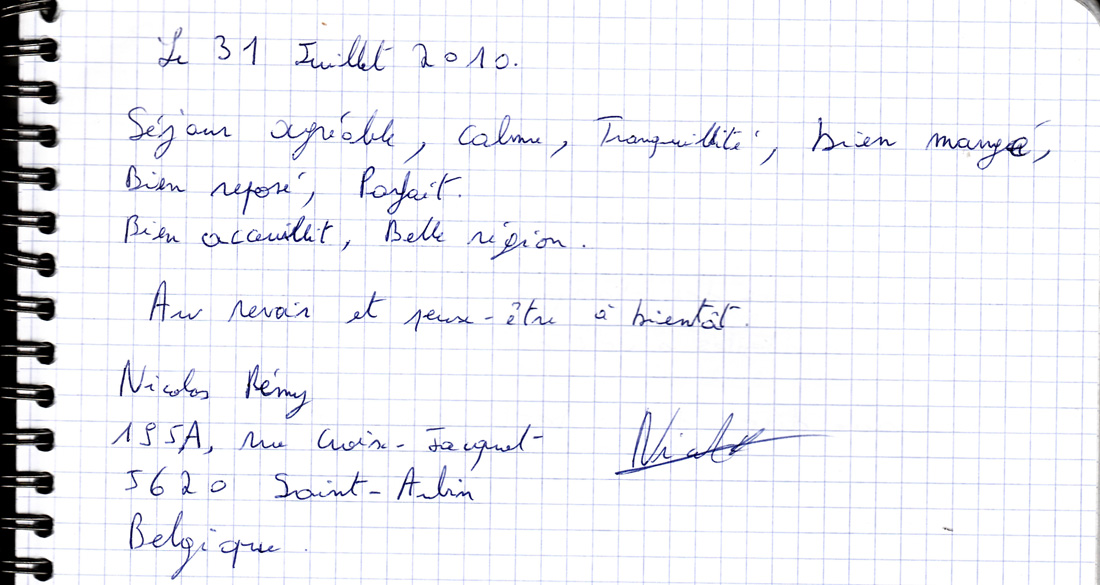 Le 31 Juillet 2010.
Séjour agréable, Calme, Tranquillité, bien mangé,
Bien reposé, Parfait.
Bien acceuillit, Belle région.
Au revoir et peux-être à bientôt.
Nicolas Rémy
195A, rue Croix-Jacquet
5620 Saint-Aubin
Belgique.